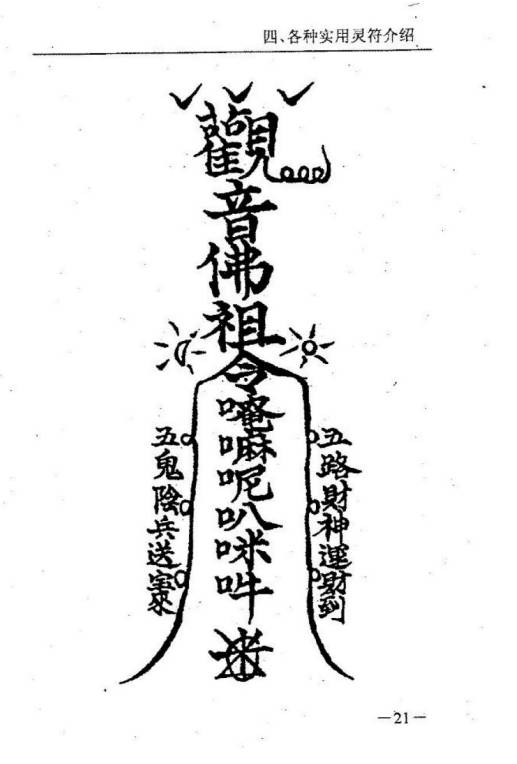 四、各种实用灵符介绍
觀音佛祖令唵嘛呢叭咪吽
五路財神運財到
五鬼陰兵送寶來
—21—